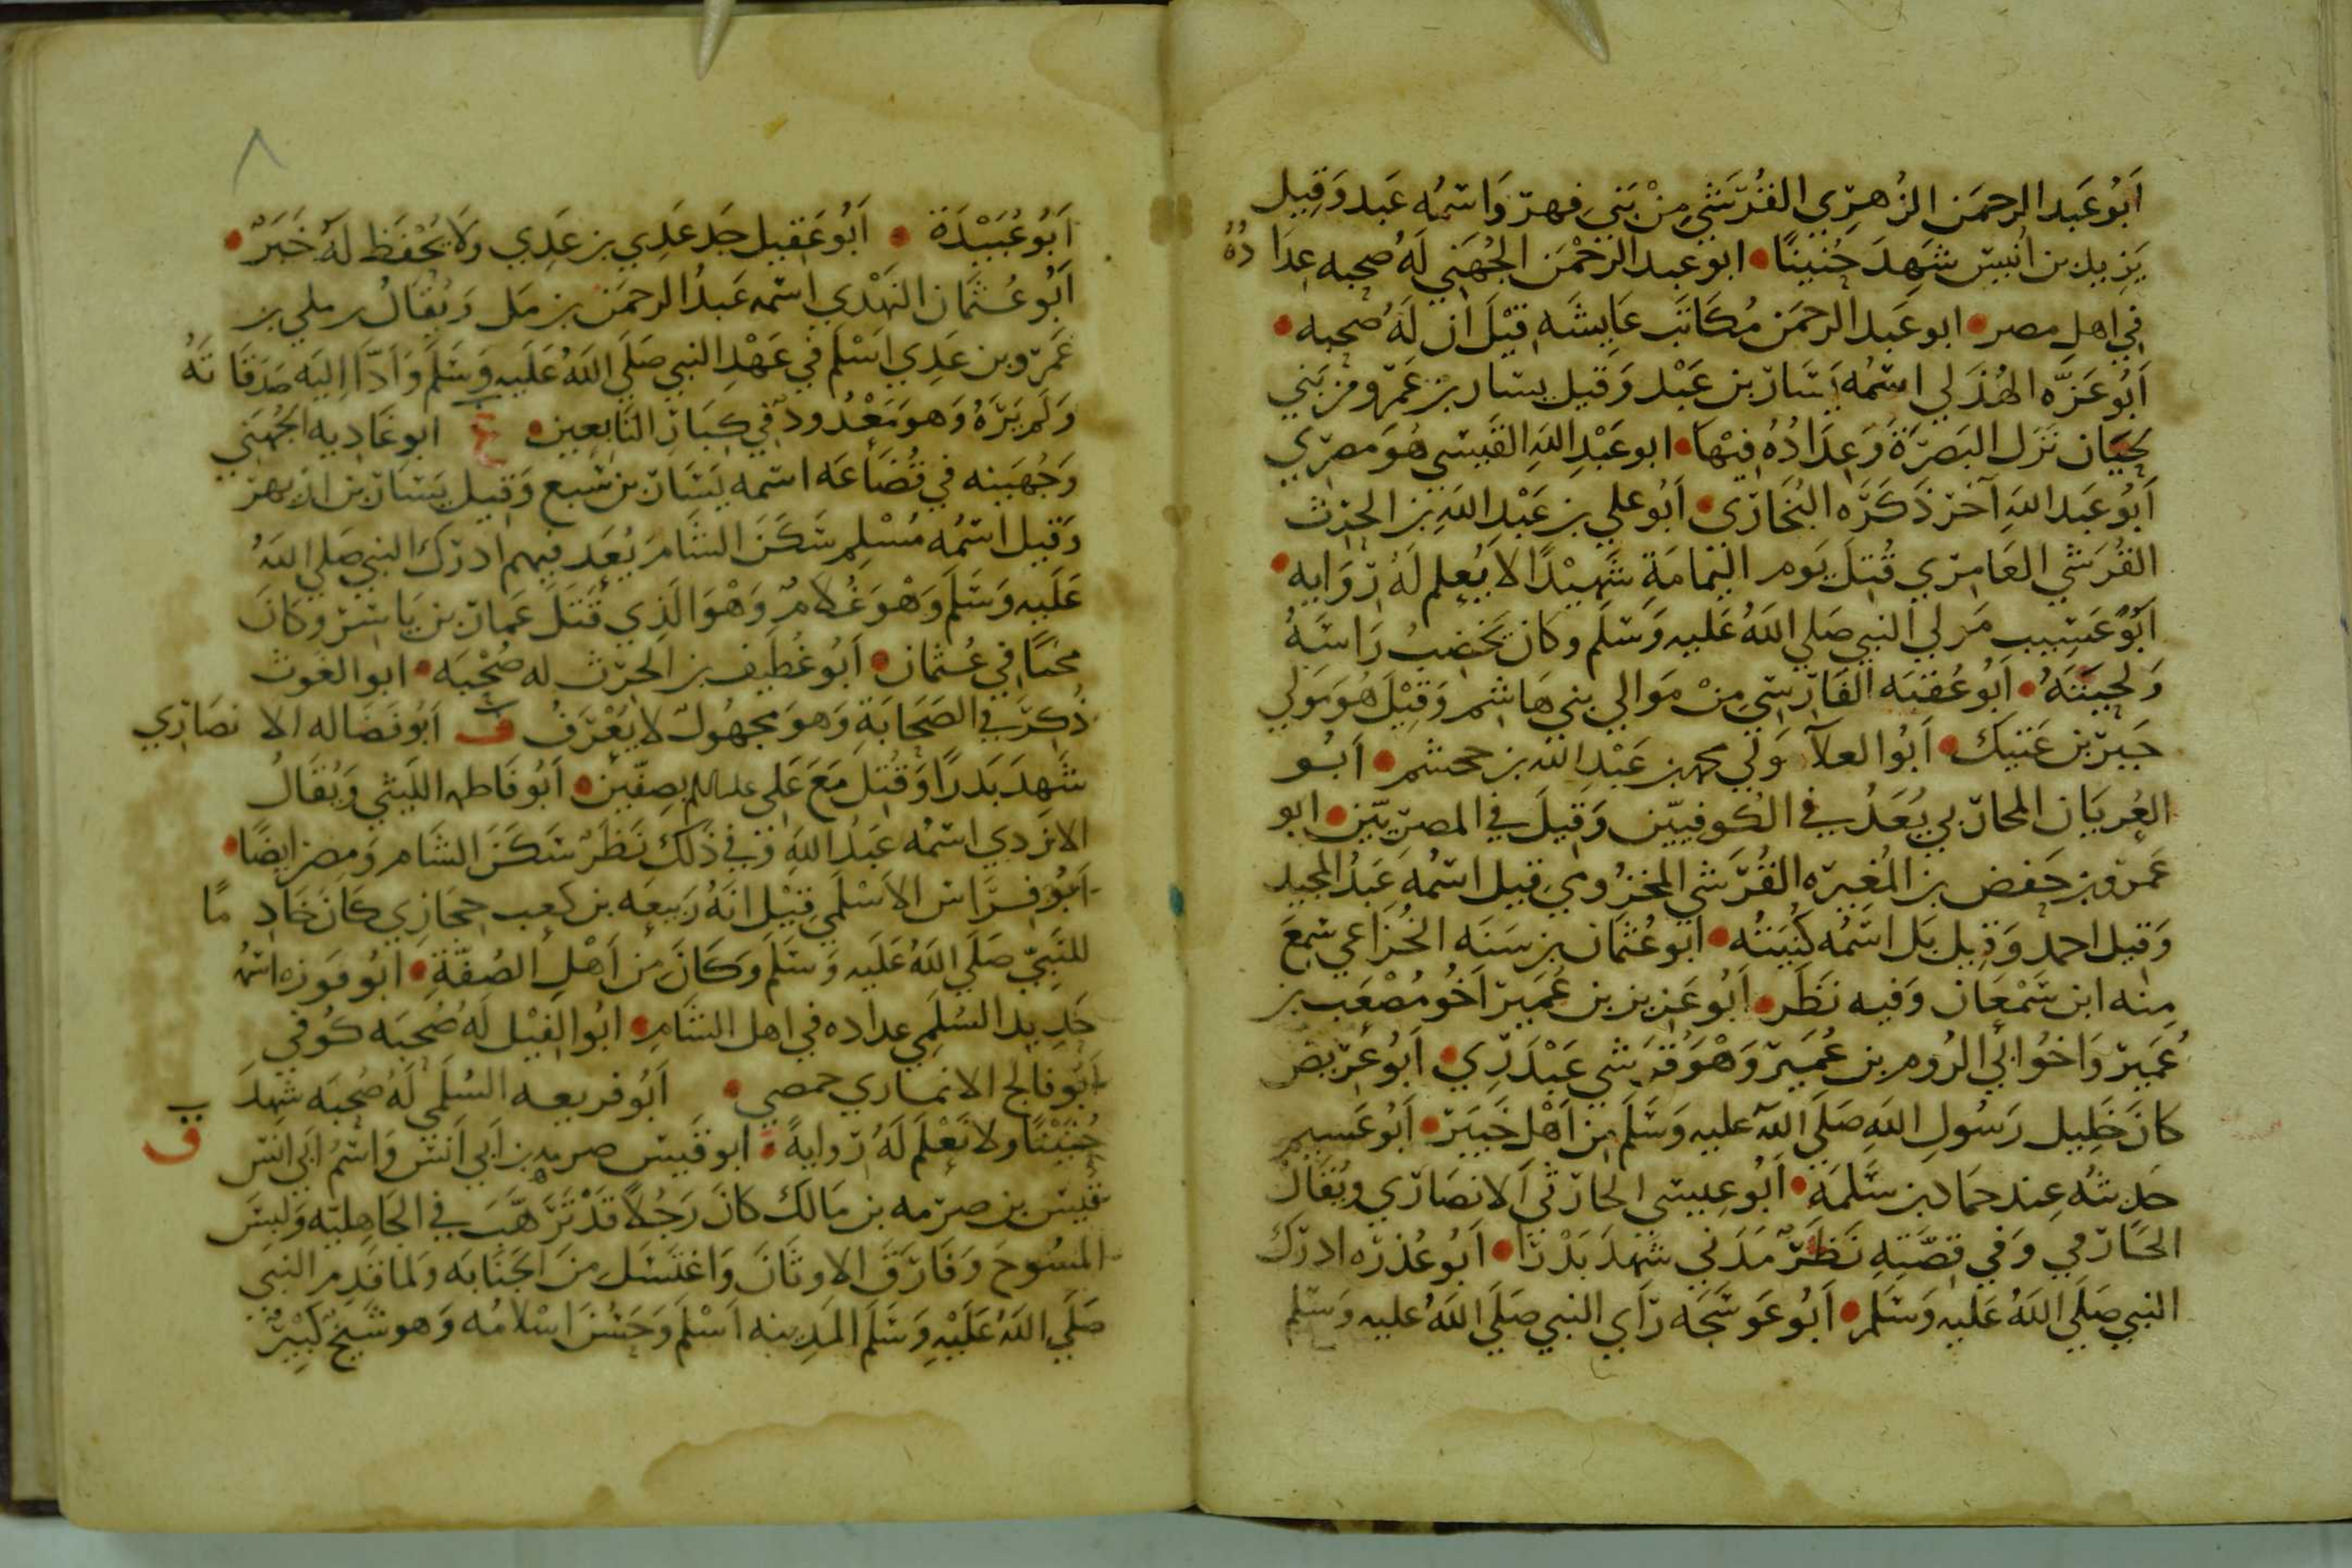 أَبُو عَبد الرحمَن الزُهرِي القُرَشي مِنْ بَني فهر وَاسمُه عَبد وَقِيل
يَزيد بن انيس شَهِدَ حُنينًا • ابو عبد الرحمَن الجُهَني لَهُ صحبه عِدَادُهُ
في اهل مصر • ابو عَبد الرحمَن مُكَاتَب عَايشَه قِيْلَ ان لَهُ صحبه •
أَبُو عَزَّه الهُذَلي اسمُه يَسَار بن عَبْد وَقيل يسار بن عَمرو من بَني
لحيَان نَزَل البَصرَةَ وَعِدَادُهُ فِيْهَا • ابو عَبْدِ اللهِ القَيسي هُوَ مصرِي
أَبُو عَبد اللهِ آخر ذَكَرَه البُخَارِي • أَبُو علي بن عَبْدِ اللهِ بن الحرث
القُرَشي العَامِري قُتِلَ يَوم اليَمَامَة شَهِيْدًا لا يُعلم لَهُ رِوَايه •
أَبُو عَسِيب مَولي النبي صَلي اللهُ عَليه وَسَلَم وكان يَخضبُ رَاسَهُ
وَلحيَتَهُ • أَبُو عُقبَه الفَارسِي مِنْ مَوالي بني هَاشم وَقِيْلَ هُوَ مَولي
جَبر بن عَتيك • أَبُو العلآ مَولي محمد بن عَبْدِ الله بن جحش • أَبُو
العُريَان المحاربي يُعَدُ في الكُوفيين وَقِيلَ في المصرِيّين • ابو
عَمرو بن حَفص بن المُغيره القُرَشي المخزُومي قيل اسمُه عَبْدُ المجيد
وَقيل احمد وَقيل بَل اسمُه كُنيَتُه • ابُو عُثمَان بن سَنَه الخُزاعي سَمعَ
مِنه ابن سَمْعَان وَفيه نَظَر • أَبُو عَزيز بن عُمَير أَخُو مُصْعَب بن
عُمَير وَاخُو ابي الرُوم بن عُمَير وَهْوَ قُرَشي عَبْدَرِي • أَبُو عَرِيض
كانَ خَلِيل رَسُولِ اللهِ صَلَي اللهُ عليه وَسَلَم مِن أَهْلِ خَيبَر • أَبُو عَسيم
حَديثُه عِند حمَاد بن سَلَمَة • أَبُو عيسَي الحارثي الانصَارِي ويُقَالُ
الحَارمي وَفي قصّتِهِ نَظَرٌ مَدَني شَهِدَ بَدْرًا • أَبُو عُذرَه ادرَك
النبي صَلَي اللهُ عَليه وَسَلَم • أَبُو عَوسَجَه رَأي النبي صَلَي اللهُ عليه وَسَلم
٨
أَبُو عُبَيْدَة • أَبُو عَقِيل جَد عَدِي بن عَدِي ولا يُحْفَظ لَهُ خَبَرٌ •
أَبُو عُثمَان النَهْدِي اسمه عَبدُ الرحمَن بن مَل وَيُقَالُ بن ملي بن
عَمرو بن عَدِي أَسْلَم في عَهْدِ النبي صَلَي اللهُ عَلَيه وَسَلَم وَأَدَّا اِليَه صَدَقَاتَهُ
وَلَم يَرَهُ وَهو مَعْدُود في كِبَار التَابِعين • غ ابو غَاديه الجُهَني
وَجُهَينه في قُضَاعَه اسمه يَسَار بن سَبع وَقِيل يَسَار بن ازَيهر
وَقيل اسمُه مُسْلِم سَكَنَ الشَام يُعَد فيهم ادرَك النبي صَلي اللهُ
عَلَيه وَسَلَم وَهْوَ غُلامٌ وَهْوَ الَذِي قَتَلَ عَمار بن يَاسر وكانَ
محبًا في عُثمان • أَبُو غُطَيف بن الحرث له صُحْبَه • ابو الغَوث
ذُكِرَ في الصَحَابَةِ وَهوَ مجهُولٌ لا يُعْرَفُ ف أَبُو فَضَاله الانصَاري
شَهِدَ بَدرًا وَقُتِلَ مَعَ عَلي عليه السلم بِصِفّين • أَبُو فَاطمه اللَيثي وَيُقَالُ
الازدي اسمُه عَبْدُ اللهِ وَفي ذلكَ نَظَرٌ سَكَنَ الشَام وَمصر ايضًا •
أَبُو فِرَاس الاسْلَمي قِيْلَ انَهُ رَبيعَه بن كَعب حِجَازِي كَانَ خَادِمًا
للنَبِيّ صَلَي اللهُ عَلَيه وَسَلَم وَكَانَ مِن أَهْلِ الصُفَّةِ • ابُو فَوزه اسمُه
حَدِيد السُلَمِي عداده في اهل الشَامِ • ابُو الفِيْل لَهُ صُحبَه كُوفي
أَبُو فالج الانماري حمصي • أَبُو فريعه السُلَمي لَهُ صُحبَه شَهِدَ
حُنَيْنًا ولا نَعْلَم لَهُ رِوايةً • ق ابو قَيس صرمه بن أَبي أَنَس وَاسْمُ ابي انَس
قَيس بن صِرمه بن مَالك كانَ رَجُلاً قَدْ تَرَهَّبَ في الجَاهِليّه وَلبسَ
المُسُوحَ وَفَارَقَ الاوثَانَ وَاغتَسَل مِنَ الجَنَابَه وَلما قَدِم النبي
صَلَي اللهُ عَلَيْهِ وَسَلَم المَدِينه اَسْلَم وَحَسُنَ اسْلامُه وَهو شَيخٌ كَبيْرٌ